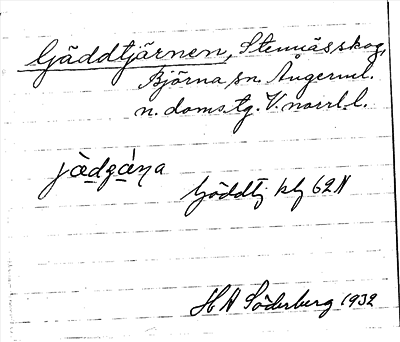 Gäddtjärnen, Stennäs skog,
Björna sn. Ångerml.
n. doms.tg. V. norrl. l.
jàdgàŋa
Gäddtj kbl 62 N
H A Söderberg 1932